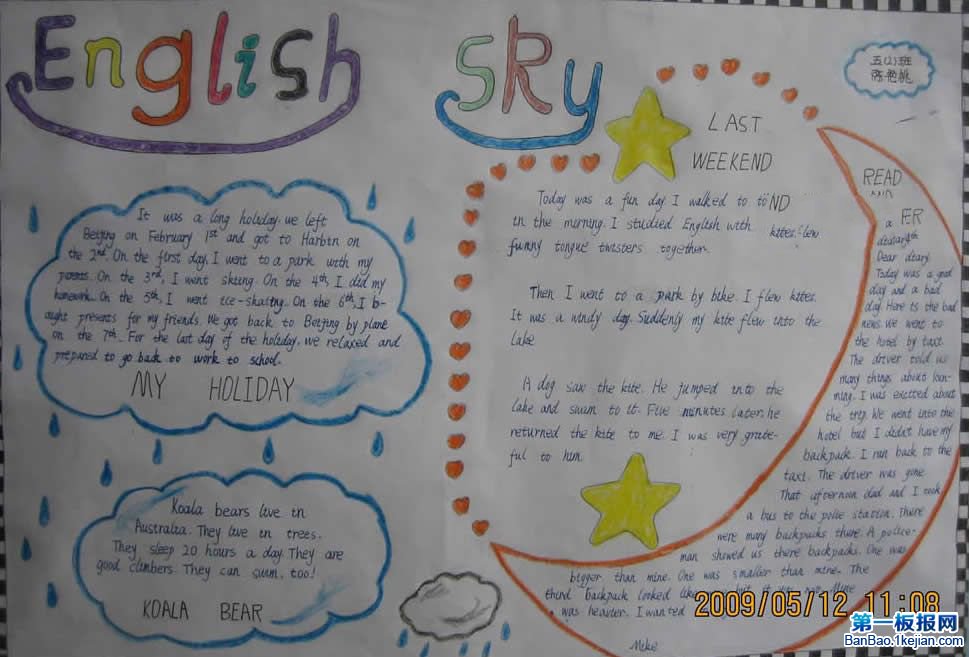 English Sky
五(2)班
LAST
WEEKEND
Today was a fun day. I walked to to ND
in the morning. I studied English with kites. flew
funny tongue twisters together.
Then I went to a park by bike. I flew kites.
It was a windy day. Suddenly my kite flew into the
lake
A dog saw the kite. He jumped into the
lake and swum to it. Five minutes later, he
returned the kite to me. I was very grate-
ful to him.
It was a long holiday. we left
Beijing on February 1st and got to Harbin on
the 2nd. On the first day, I went to a park with my
parents. On the 3rd, I went skiing. On the 4th, I did my
homework. On the 5th, I went ice-skating. On the 6th, I b-
ought presents for my friends. We got back to Beijing by plane
on the 7th. For the last day of the holiday, we relaxed and
prepared to go back to work to school.
MY HOLIDAY
Koala bears live in
Australia. They live in trees.
They sleep 20 hours a day. They are
good climbers. They can swim, too!
KOALA BEAR
READ
AND
ER
a
Dear diary
Today was a good
day and a bad
day. Here is the bad
news. We went to
the hotel by taxi.
The driver told us
many things about
I was excited about
the trip. We went into the
hotel but I didn't have my
backpack. I ran back to the
taxi. The driver was gone.
That afternoon dad and I took
a bus to the police station. There
were many backpacks there. A police-
man showed us there backpacks. One was
bigger than mine. One was smaller than mine. The
third backpack looked like
was heavier. I wanted
Mike
2009/05/12 11:08
第一板报网
BanBao.1kejian.com